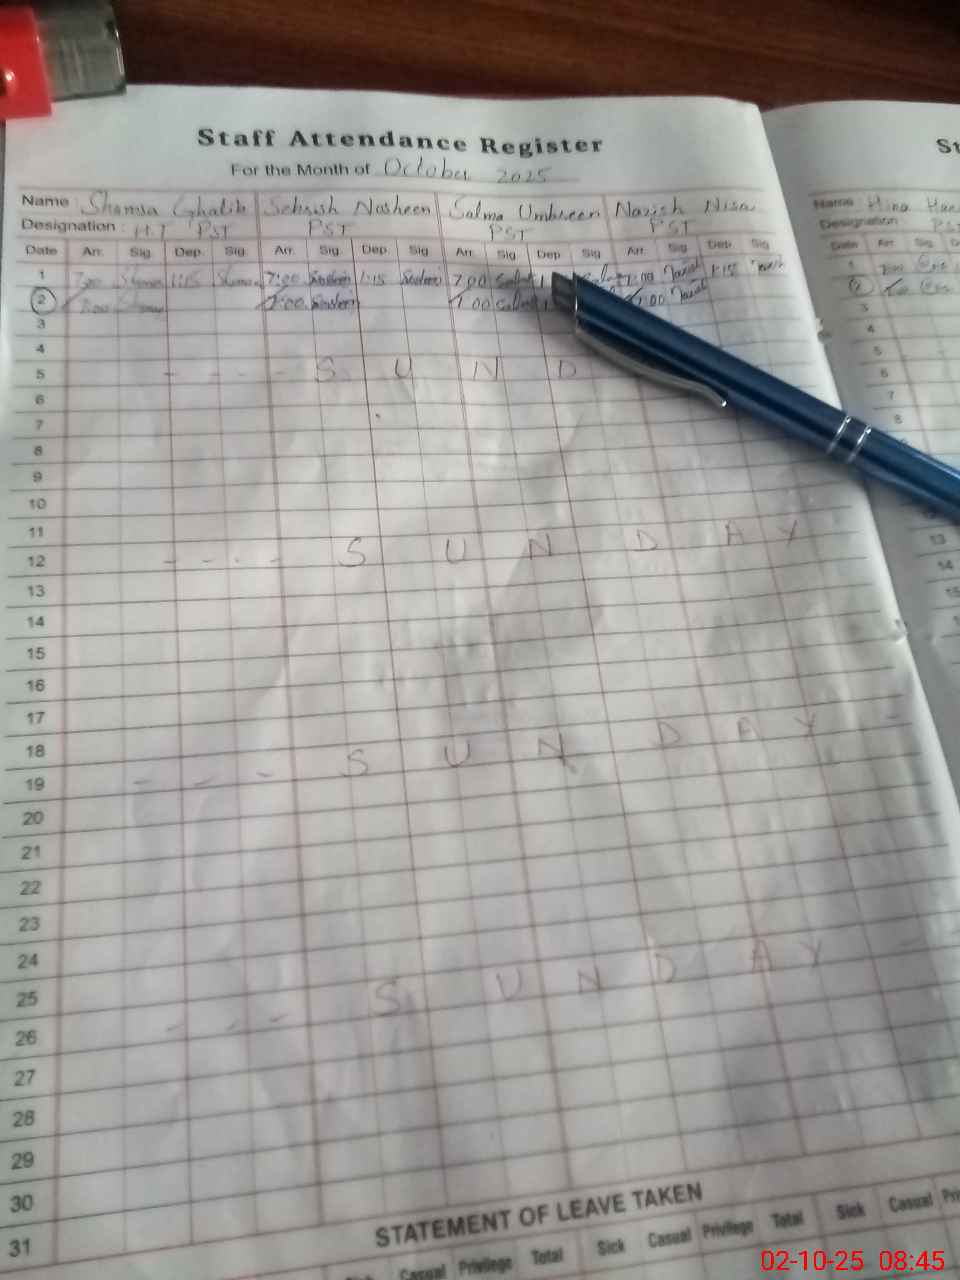 Staff Attendance Register
St
For the Month of October 2025
Name Shamsa Ghalib Sehrish Nosheen Salma Umbreen Navish Nisa Name Hina
Designation : H.T PST PST PST PST Designation PST
Date Arr. Sig. Dep. Sig. Arr. Sig. Dep. Sig Arr. Sig. Dep. Sig Arr. Sig. Dep. Sig Date Arr. Sig. D
1 7:00 Shamsa 1:15 Shamsa 7:00 Nosheen 1:15 Nosheen 7:00 Salma 1 7:00 Navish 1:15 Navish 1
2 7:00 Shamsa 7:00 Nosheen 7:00 Salma 1 7:00 Navish 2
3 3
4 4
5 - - - - S U N D 5
6 6
7 7
8 8
9
10
11
12 - - - - S U N D A Y
13 13
14 14
15 15
16
17
18
19 - - - S U N D A Y -
20
21
22
23
24
25
26 - - - S U N D A Y -
27
28
29
30
31
STATEMENT OF LEAVE TAKEN
Casual Privilege Total Sick Casual Privilege Total Sick Casual Pri
02-10-25 08:45